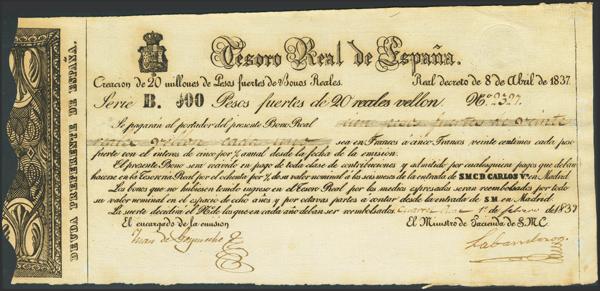 DEUDA PREFERENTE DE ESPAÑA.
Tesoro Real de España.
Creacion de 20 millones de Pesos fuertes de Bonos Reales. Real decreto de 8 de Abril de 1837.
Serie B. 100 Pesos fuertes de 20 reales vellon. Nº. 2327.
Se pagarán al portador del presente Bono Real cien pesos fuertes de veinte
reales vellon cada uno sea en Francos á cinco Francos veinte centimos cada peso
fuerte con el interes de cinco por % anual desde la fecha de la emision.
El presente Bono sera recivido en pago de toda clase de contribuciones y admitido por cualesquiera pagos que deban
hacerse en la Tesoreria Real por el ochenta por % de su valor nominal á las seis meses de la entrada de S M C D CARLOS Vº. en Madrid
Los bonos que no hubiesen tenido ingreso en el Tesoro Real por los medios espresados seran reembolsados por todo
su valor nominal en el espacio de ocho años y por octavas partes á contar desde la entrada de S M. en Madrid.
La suerte decidirá el Nº de los que en cada año deban ser reembolsados. 1º de febrero de 1837
El encargado de la emision El Ministro de Hacienda de S.M.C
Juan de
Labandero